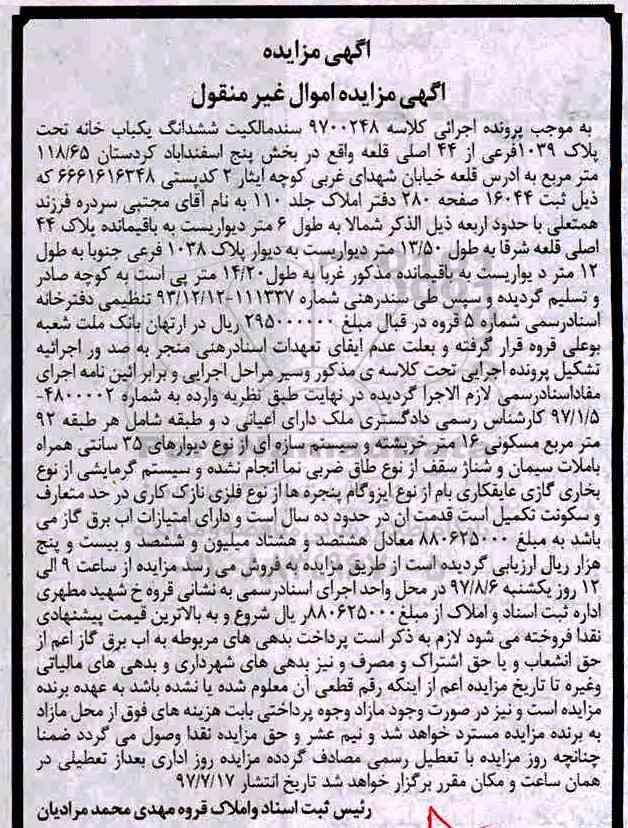 آگهی مزایده
آگهی مزایده اموال غیر منقول
به موجب پرونده اجرائی کلاسه ۹۷۰۰۲۴۸ سندمالکیت ششدانگ یکباب خانه تحت
پلاک ۱۰۳۹فرعی از ۴۴ اصلی قلعه واقع در بخش پنج اسفنداباد کردستان ۱۱۸/۶۵
متر مربع به ادرس قلعه خیابان شهدای غربی کوچه ایثار ۲ کدپستی ۶۶۶۱۶۱۶۳۴۸ که
ذیل ثبت ۱۶۰۴۴ صفحه ۲۸۰ دفتر املاک جلد ۱۱۰ به نام آقای مجتبی سردره فرزند
همتعلی با حدود اربعه ذیل الذکر شمالا به طول ۶ متر دیواریست به باقیمانده پلاک ۴۴
اصلی قلعه شرقا به طول ۱۳/۵۰ متر دیواریست به دیوار پلاک ۱۰۳۸ فرعی جنوبا به طول
۱۲ متر د یواریست به باقیمانده مذکور غربا به طول۱۴/۲۰ متر پی است به کوچه صادر
و تسلیم گردیده و سپس طی سندرهنی شماره ۱۱۱۳۳۷-۹۳/۱۲/۱۲ تنظیمی دفترخانه
اسنادرسمی شماره ۵ قروه در قبال مبلغ ۲۹۵۰۰۰۰۰۰ ریال در ارتهان بانک ملت شعبه
بوعلی قروه قرار گرفته و بعلت عدم ایفای تعهدات اسنادرهنی منجر به صد ور اجرائیه
تشکیل پرونده اجرایی تحت کلاسه ی مذکور وسیر مراحل اجرایی و برابر ائین نامه اجرای
مفاداسنادرسمی لازم الاجرا گردیده در نهایت طبق نظریه وارده به شماره ۴۸۰۰۰۰۲-
۹۷/۱/۵ کارشناس رسمی دادگستری ملک دارای اعیانی د و طبقه شامل هر طبقه ۹۲
متر مربع مسکونی ۱۶ متر خرپشته و سیستم سازه ای از نوع دیوارهای ۳۵ سانتی همراه
باملات سیمان و شناژ سقف از نوع طاق ضربی نما انجام نشده و سیستم گرمایشی از نوع
بخاری گازی عایقکاری بام از نوع ایزوگام پنجره ها از نوع فلزی نازک کاری در حد متعارف
و سکونت تکمیل است قدمت ان در حدود ده سال است و دارای امتیازات اب برق گاز می
باشد به مبلغ ۸۸۰۶۲۵۰۰۰ معادل هشتصد و هشتاد میلیون و ششصد و بیست و پنج
هزار ریال ارزیابی گردیده است از طریق مزایده به فروش می رسد مزایده از ساعت ۹ الی
۱۲ روز یکشنبه ۹۷/۸/۶ در محل واحد اجرای اسنادرسمی به نشانی قروه خ شهید مطهری
اداره ثبت اسناد و املاک از مبلغ۸۸۰۶۲۵۰۰۰ر یال شروع و به بالاترین قیمت پیشنهادی
نقدا فروخته می شود لازم به ذکر است پرداخت بدهی های مربوطه به اب برق گاز اعم از
حق انشعاب و یا حق اشتراک و مصرف و نیز بدهی های شهرداری و بدهی های مالیاتی
وغیره تا تاریخ مزایده اعم از اینکه رقم قطعی آن معلوم شده یا نشده باشد به عهده برنده
مزایده است و نیز در صورت وجود مازاد وجوه پرداختی بابت هزینه های فوق از محل مازاد
به برنده مزایده مسترد خواهد شد و نیم عشر و حق مزایده نقدا وصول می گردد ضمنا
چنانچه روز مزایده با تعطیل رسمی مصادف گردده مزایده روز اداری بعداز تعطیلی در
همان ساعت و مکان مقرر برگزار خواهد شد تاریخ انتشار ۹۷/۷/۱۷
رئیس ثبت اسناد واملاک قروه مهدی محمد مرادیان